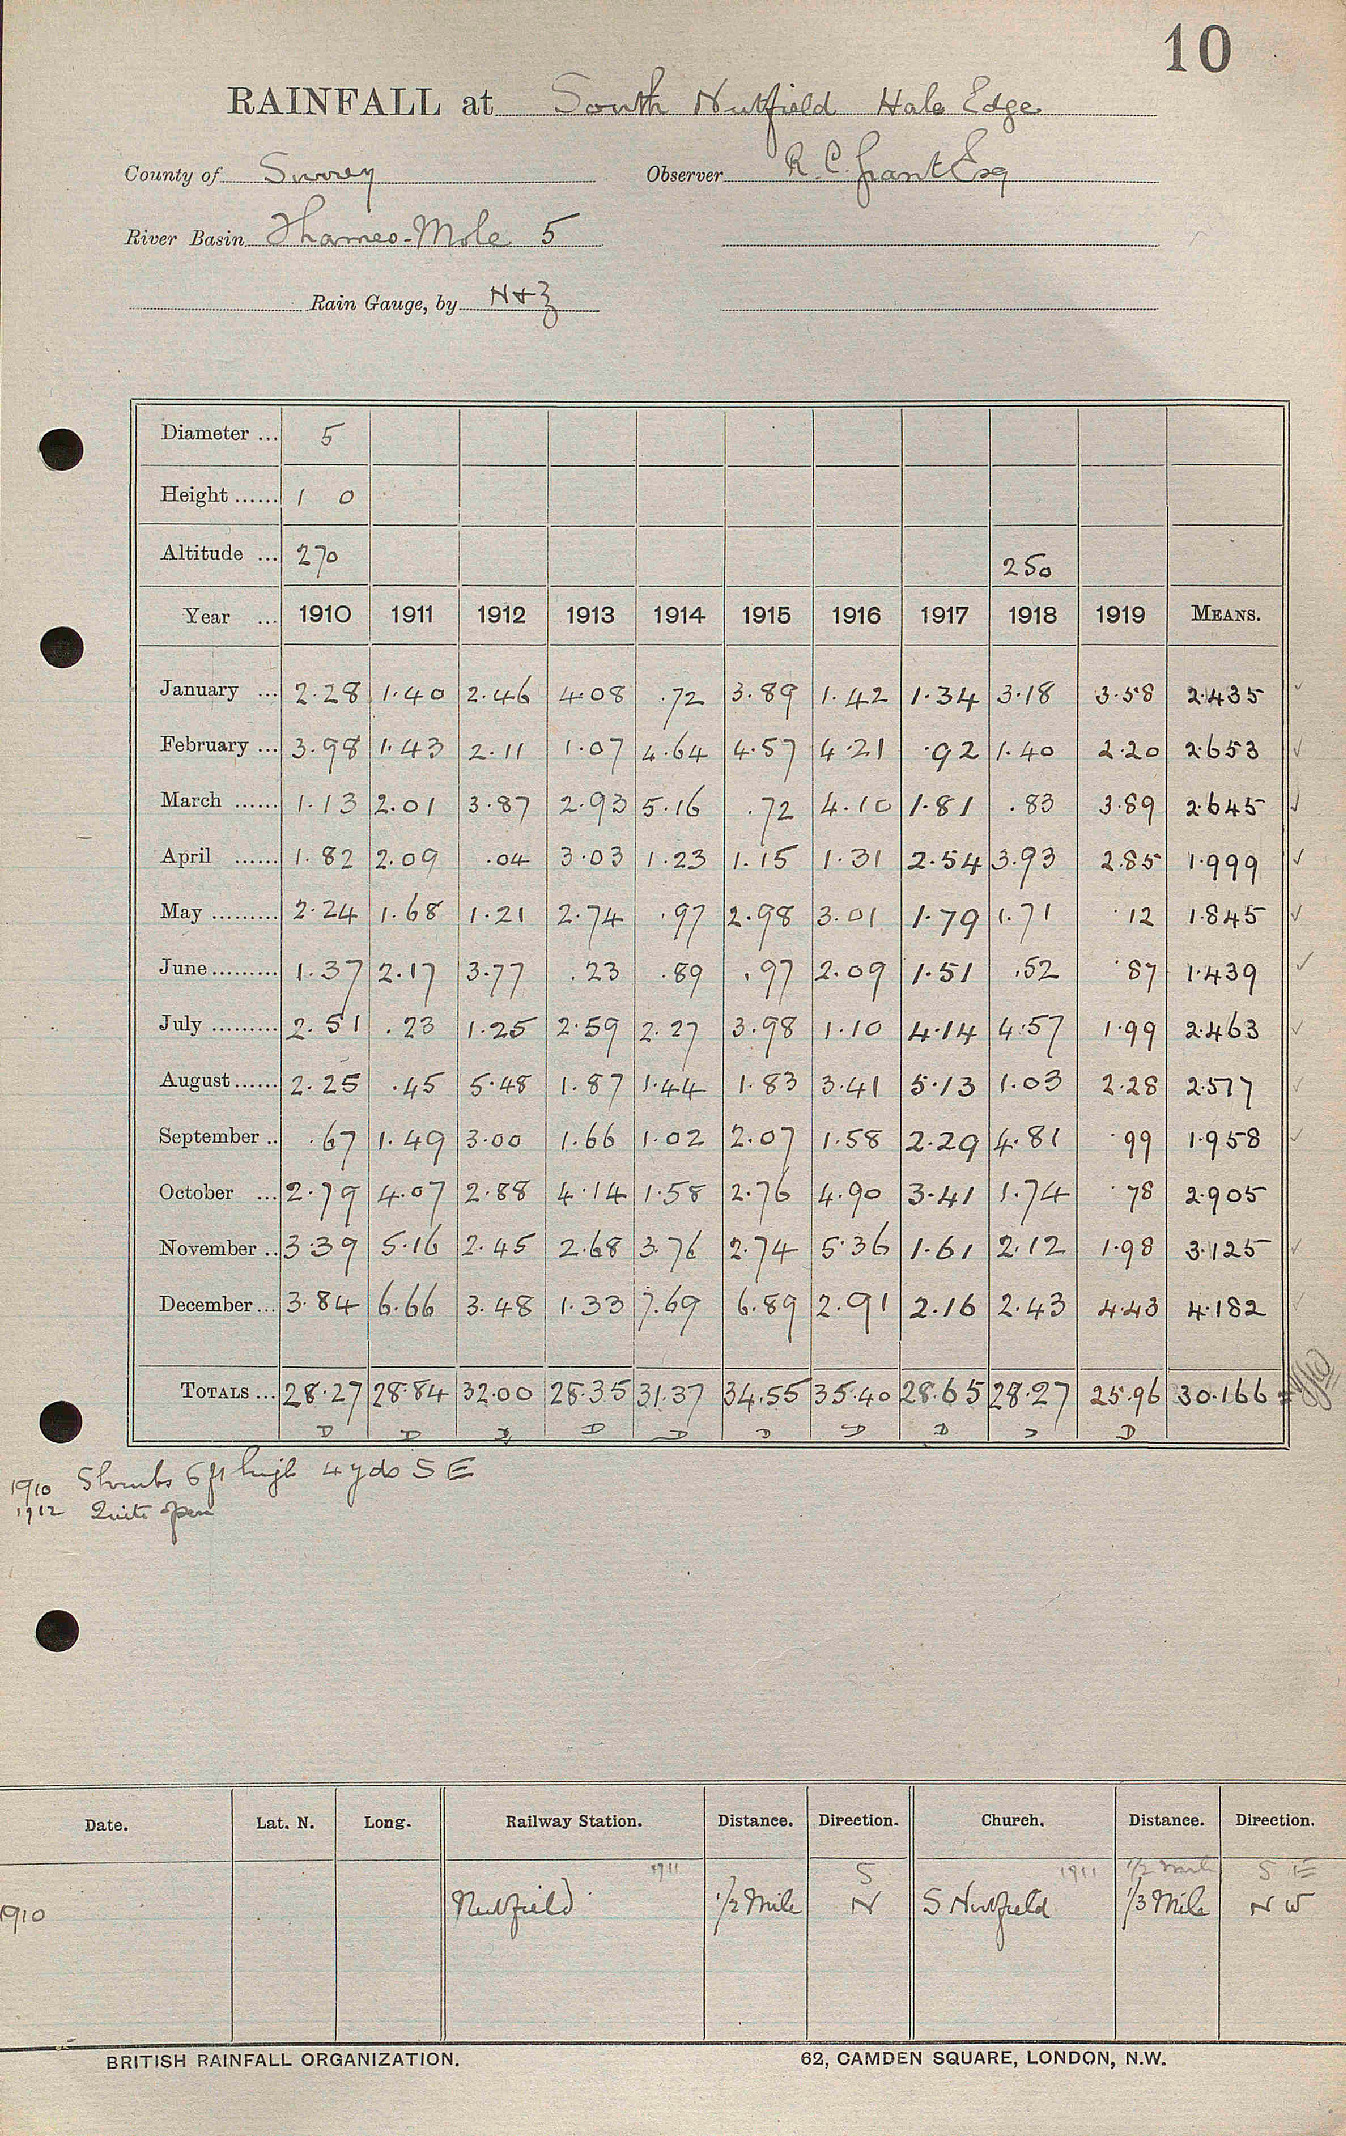 10
RAINFALL at South Nutfield Hale Edge
County of Surrey Observer R. C. Grant Esq
River Basin Thames-Mole 5
Rain Gauge, by N+Z
Diameter ... 5
Height ...... 1 0
Altitude ... 270 250
Year ... 1910 1911 1912 1913 1914 1915 1916 1917 1918 1919 MEANS.
January ... 2.28 1.40 2.46 4.08 .72 3.89 1.42 1.34 3.18 3.58 2.435
February ... 3.98 1.43 2.11 1.07 4.64 4.57 4.21 .92 1.40 2.20 2.653
March ...... 1.13 2.01 3.87 2.93 5.16 .72 4.10 1.81 .83 3.89 2.645
April ...... 1.82 2.09 .04 3.03 1.23 1.15 1.31 2.54 3.93 2.85 1.999
May ......... 2.24 1.68 1.21 2.74 .97 2.98 3.01 1.79 1.71 .12 1.845
June ......... 1.37 2.17 3.77 .23 .89 .97 2.09 1.51 .52 .87 1.439
July ......... 2.51 .23 1.25 2.59 2.27 3.98 1.10 4.14 4.57 1.99 2.463
August ...... 2.25 .45 5.48 1.87 1.44 1.83 3.41 5.13 1.03 2.28 2.517
September .. .67 1.49 3.00 1.66 1.02 2.07 1.58 2.29 4.81 .99 1.958
October ... 2.79 4.07 2.88 4.14 1.58 2.76 4.90 3.41 1.74 .78 2.905
November .. 3.39 5.16 2.45 2.68 3.76 2.74 5.36 1.61 2.12 1.98 3.125
December ... 3.84 6.66 3.48 1.33 7.69 6.89 2.91 2.16 2.43 4.43 4.182
TOTALS ... 28.27 28.84 32.00 28.35 31.37 34.55 35.40 28.65 28.27 25.96 30.166
D D D D D D D D D D
1910 Shrubs 6 ft high 4 yds S E
1912 Quite open
Date. Lat. N. Long. Railway Station. Distance. Direction. Church. Distance. Direction.
1911 S 1911 1/2 mile S E
1910 Nutfield 1/2 Mile N S Nutfield 1/3 Mile N W
BRITISH RAINFALL ORGANIZATION. 62, CAMDEN SQUARE, LONDON, N.W.